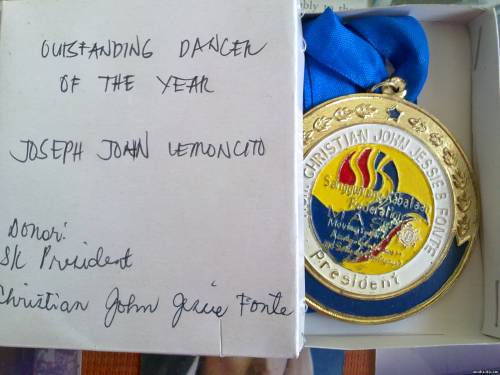 OUTSTANDING DANCER
OF THE YEAR
JOSEPH JOHN LEMONCITO
Donor:
SK President
Christian John Jessie Fonte
HON. CHRISTIAN JOHN JESSIE B. FONTE
Sangguniang Kabataan
Federation
President